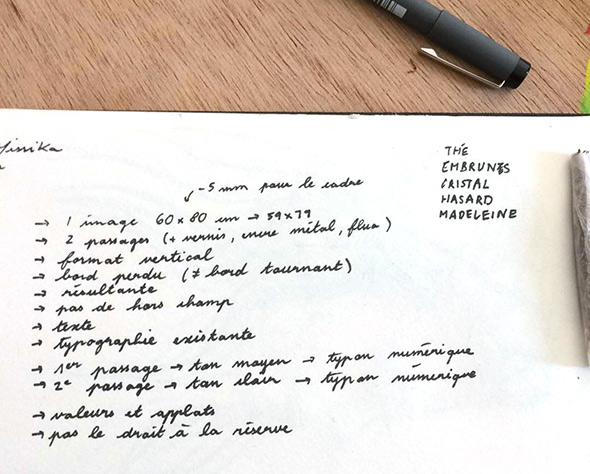 THÉ
EMBRUNES
CRISTAL
HASARD
MADELEINE
-5 mm pour le cadre
→ 1 image 60x80 cm → 59x79
→ 2 passages (+ vernis, encre métal, fluo)
→ format vertical
→ bord perdu (≠ bord tournant)
→ résultante
→ pas de hors champ
→ texte
→ typographie existante
→ 1er passage → ton moyen → typon numérique
→ 2e passage → ton clair → typon númerique
→ valeurs et applats
→ pas le droit à la réserve